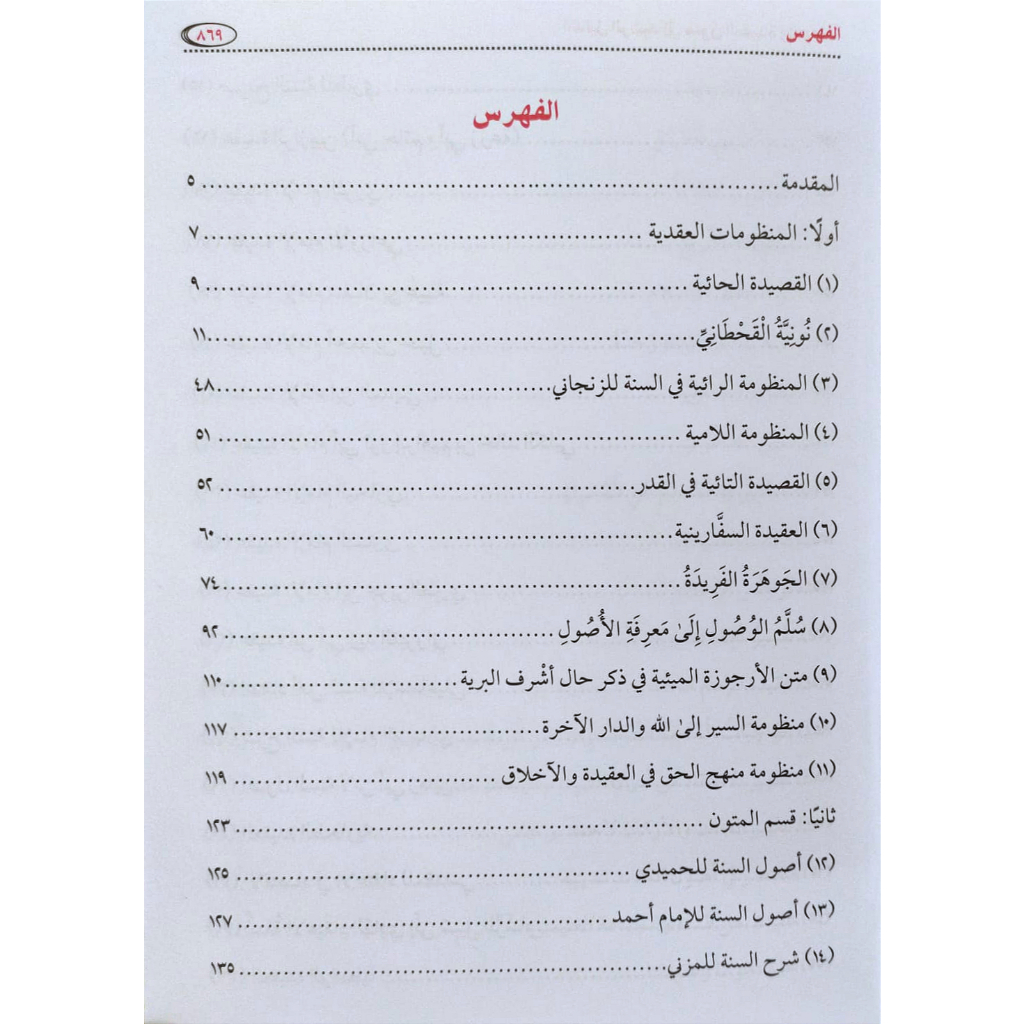 الفهرس ٨٦٩
الفهرس
المقدمة ..... ٥
أولًا: المنظومات العقدية ..... ٧
(١) القصيدة الحائية ..... ٩
(٢) نُونِيَّةُ الْقَحْطَانِيِّ ..... ١١
(٣) المنظومة الرائية في السنة للزنجاني ..... ٤٨
(٤) المنظومة اللامية ..... ٥١
(٥) القصيدة التائية في القدر ..... ٥٢
(٦) العقيدة السفَّارينية ..... ٦٠
(٧) الجَوهَرَةُ الفَرِيدَةُ ..... ٧٤
(٨) سُلَّمُ الوُصُولِ إِلَىٰ مَعرِفَةِ الأُصُولِ ..... ٩٢
(٩) متن الأرجوزة الميئية في ذكر حال أشْرف البرية ..... ١١٠
(١٠) منظومة السير إلىٰ الله والدار الآخرة ..... ١١٧
(١١) منظومة منهج الحق في العقيدة والأخلاق ..... ١١٩
ثانيًا: قسم المتون ..... ١٢٣
(١٢) أصول السنة للحميدي ..... ١٢٥
(١٣) أصول السنة للإمام أحمد ..... ١٢٧
(١٤) شرح السنة للمزني ..... ١٣٥